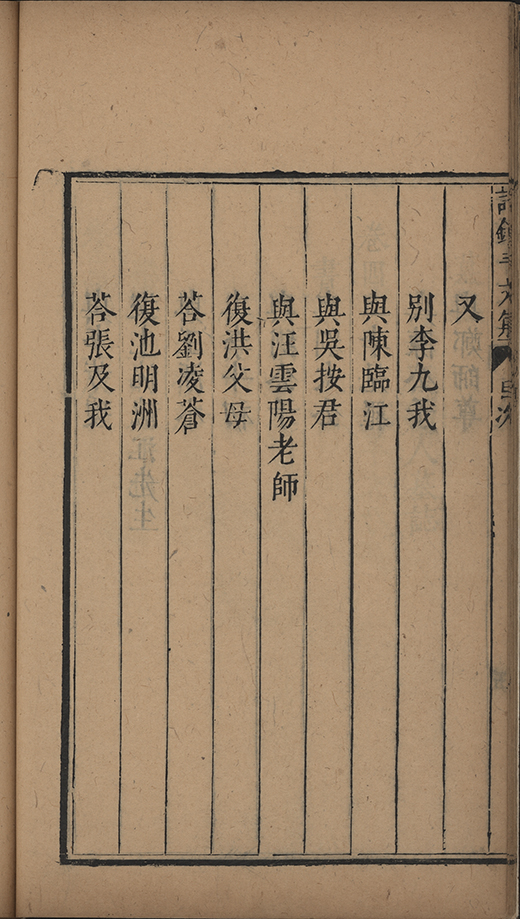 又
別李九我
與陳臨江
與吳按君
與汪雲陽老師
復洪父母
荅劉凌蒼
復池明洲
荅張及我